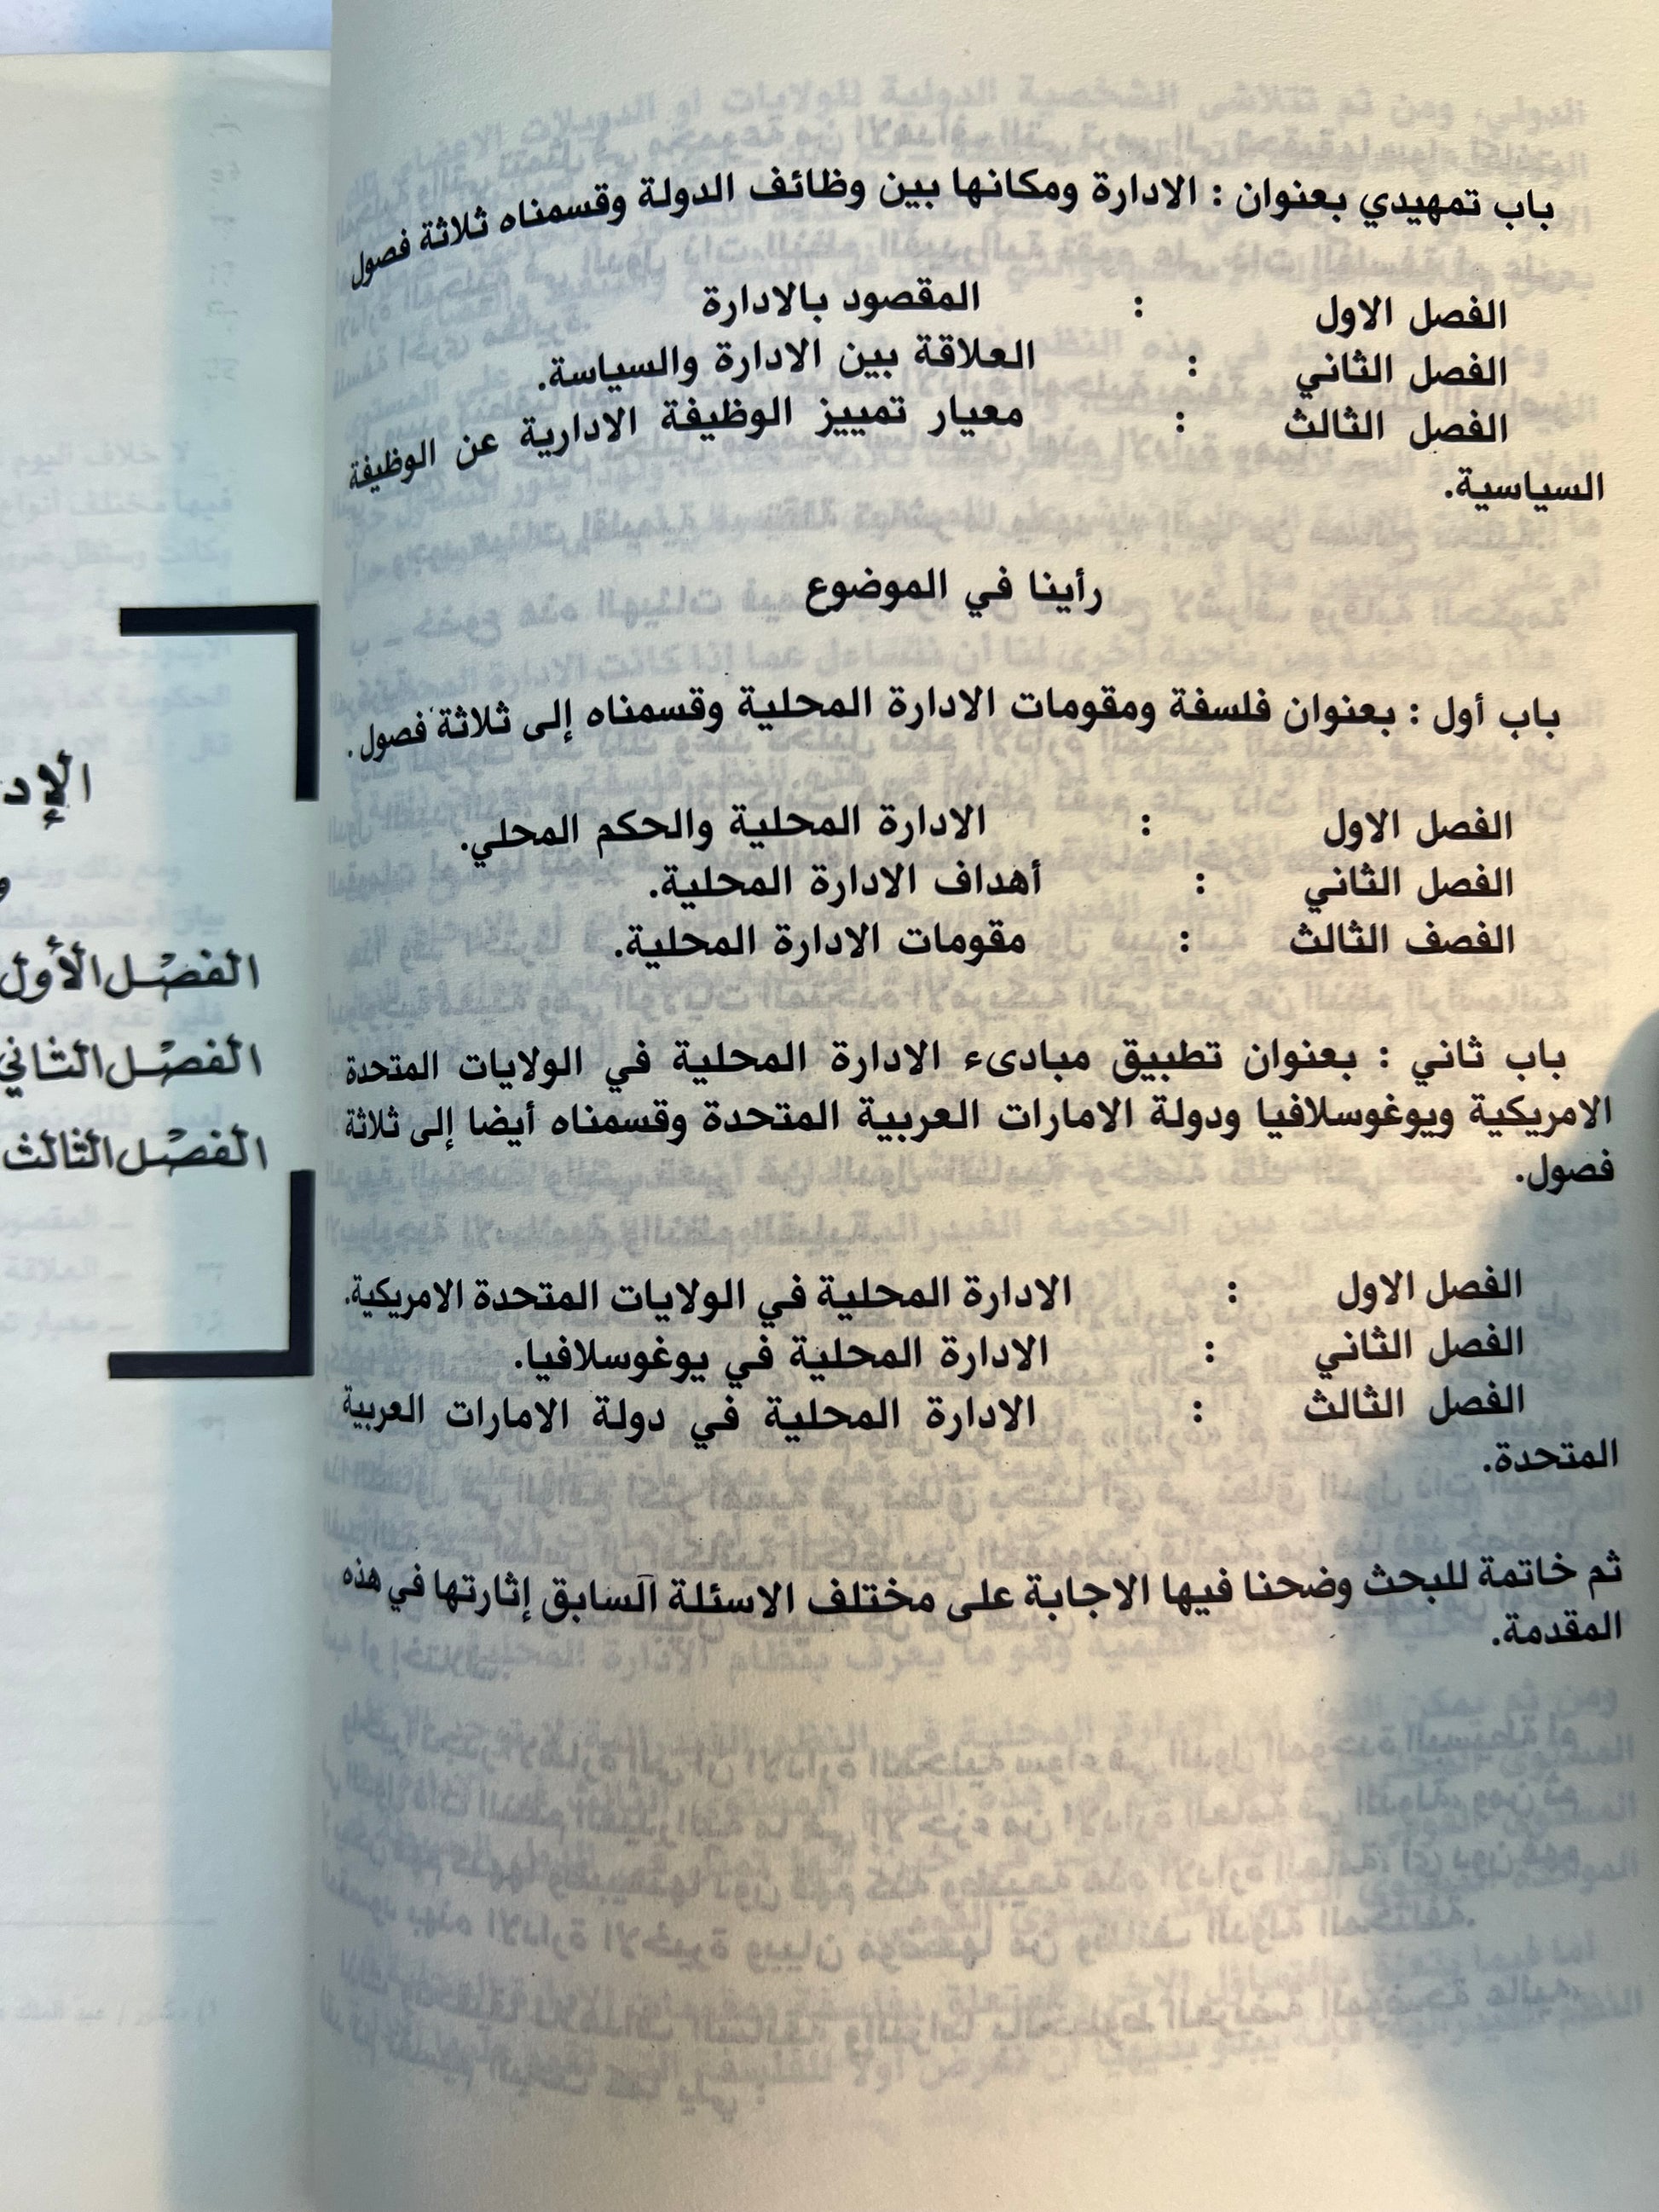 باب تمهيدي بعنوان : الادارة ومكانها بين وظائف الدولة وقسمناه ثلاثة فصول
الفصل الاول : المقصود بالادارة
الفصل الثاني : العلاقة بين الادارة والسياسة.
الفصل الثالث : معيار تمييز الوظيفة الادارية عن الوظيفة
السياسية.
رأينا في الموضوع
باب أول : بعنوان فلسفة ومقومات الادارة المحلية وقسمناه إلى ثلاثة فصول.
الفصل الاول : الادارة المحلية والحكم المحلي.
الفصل الثاني : أهداف الادارة المحلية.
الفصف الثالث : مقومات الادارة المحلية.
باب ثاني : بعنوان تطبيق مبادىء الادارة المحلية في الولايات المتحدة
الامريكية ويوغوسلافيا ودولة الامارات العربية المتحدة وقسمناه أيضا إلى ثلاثة
فصول.
الفصل الاول : الادارة المحلية في الولايات المتحدة الامريكية.
الفصل الثاني : الادارة المحلية في يوغوسلافيا.
الفصل الثالث : الادارة المحلية في دولة الامارات العربية
المتحدة.
ثم خاتمة للبحث وضحنا فيها الاجابة على مختلف الاسئلة السابق إثارتها في هذه
المقدمة.
الفصل الأول
الفصل الثاني
الفصل الثالث